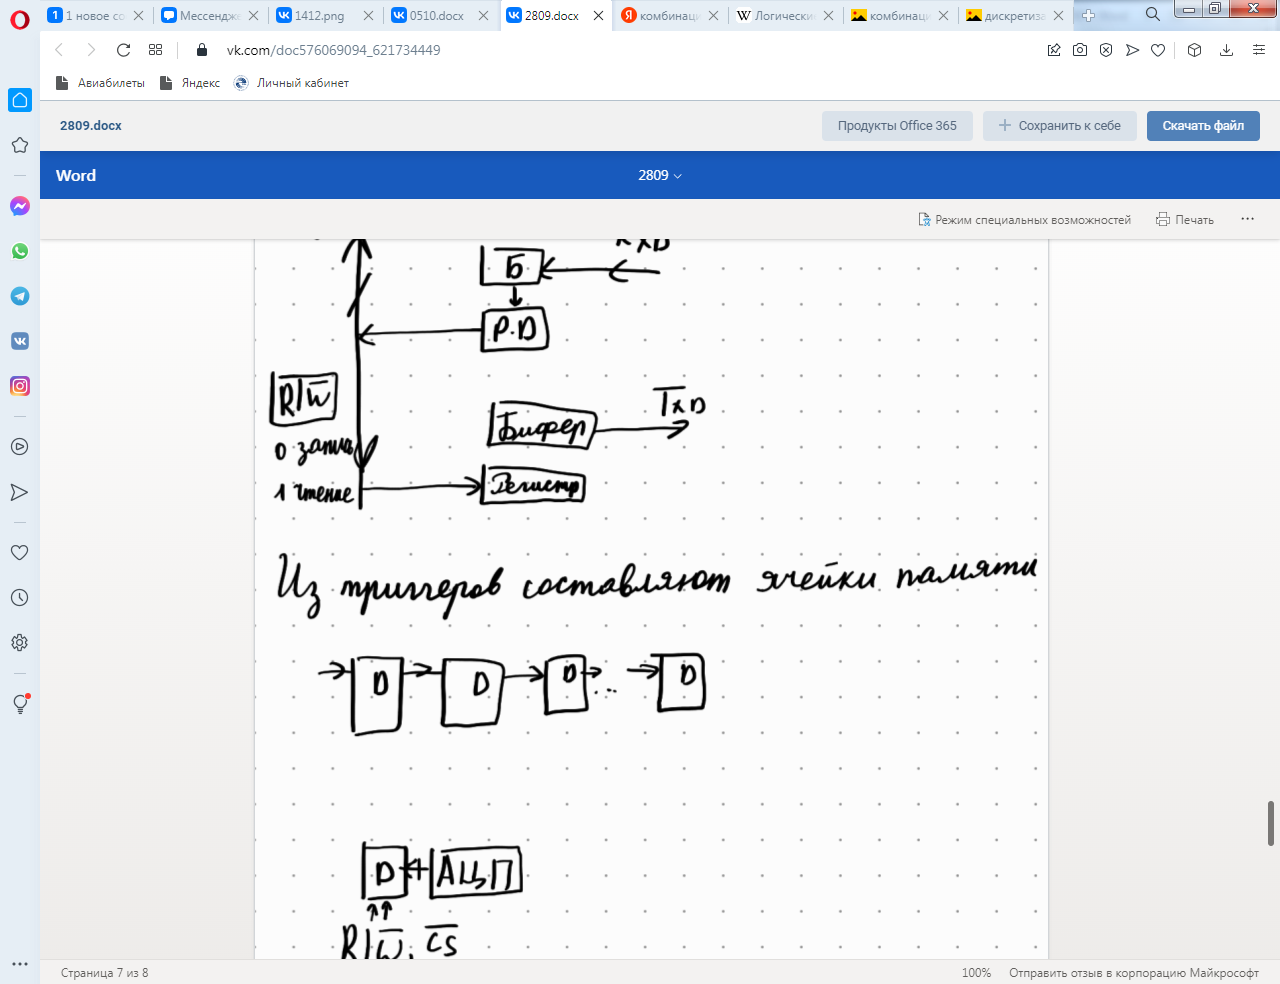 1 новое со
Мессендже
1412.png
0510.docx
2809.docx
комбинаци
Логически
комбинац
дискретиза
vk.com/doc576069094_621734449
Авиабилеты
Яндекс
Личный кабинет
2809.docx
Продукты Office 365
Сохранить к себе
Скачать файл
Word
2809
Режим специальных возможностей
Печать
Б
P.D
R|W̅
0 запись
1 чтение
Буфер
TxD
Регистр
Из триггеров составляют ячейки памяти
D D D ... D
D АЦП
R|W̅, C̅S̅
Страница 7 из 8
100%
Отправить отзыв в корпорацию Майкрософт